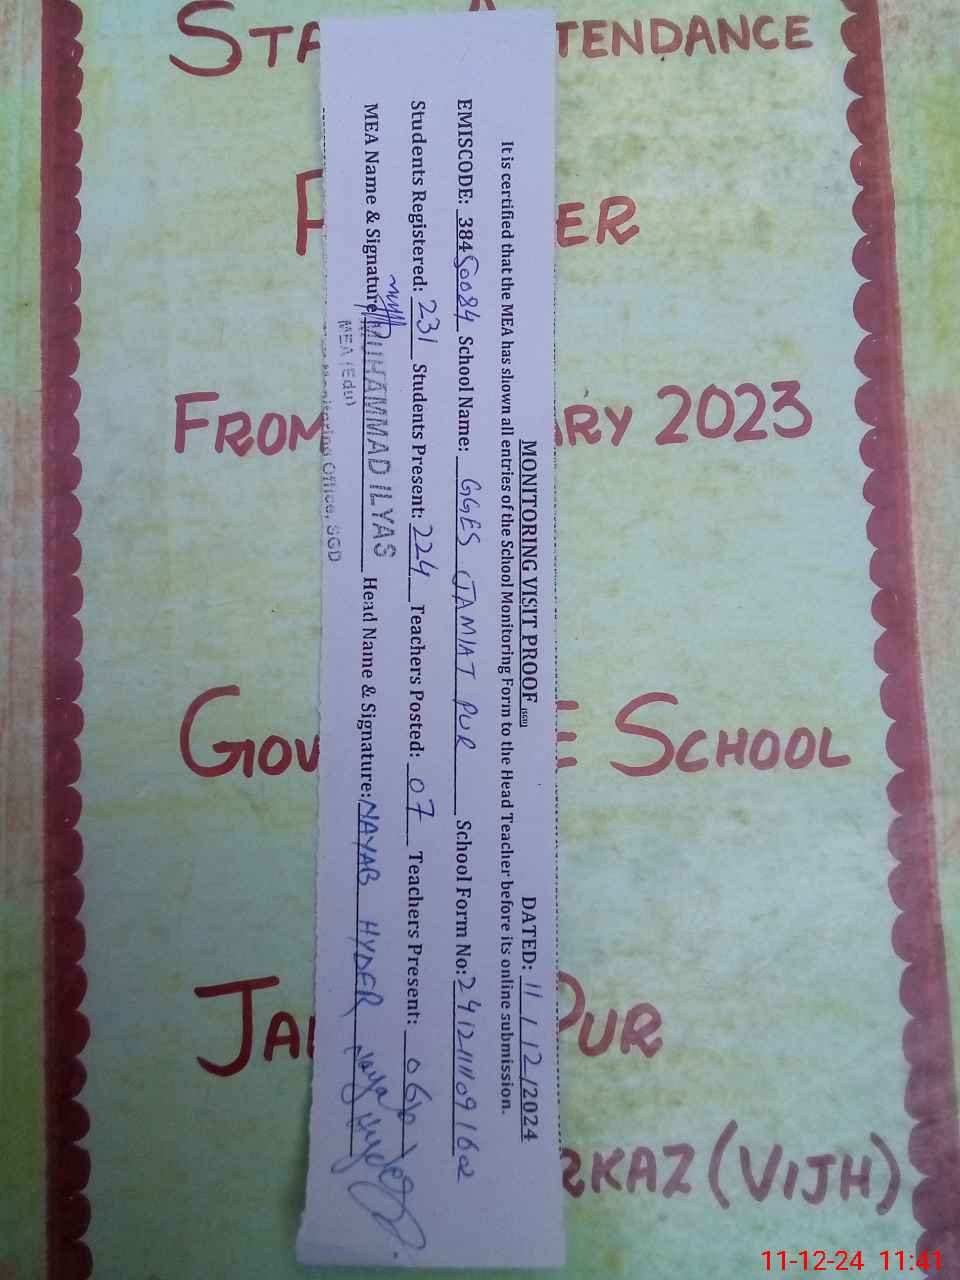 STA ATTENDANCE
ER
FROM RY 2023
GOV SCHOOL
JA PUR
RKAZ (VIJH)
MONITORING VISIT PROOF (SGD) DATED: 11/12/2024
It is certified that the MEA has shown all entries of the School Monitoring Form to the Head Teacher before its online submission.
EMISCODE: 38450084 School Name: GGES JAMIAT PUR School Form No: 2412111109162
Students Registered: 231 Students Present: 224 Teachers Posted: 07 Teachers Present: 06
MEA Name & Signature MUHAMMAD ILYAS Head Name & Signature: NAYAB HYDER Nayab Hyder
MEA (Edu)
Monitoring Office, SGD
11-12-24 11:41